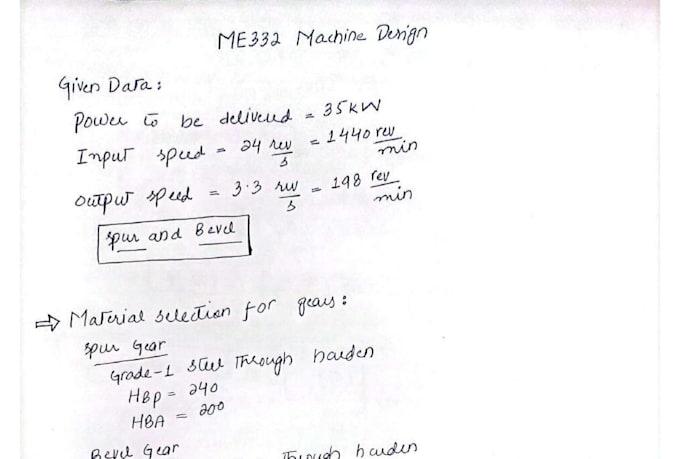 ME332 Machine Design
Given Data:
Power to be delivered = 35kW
Input speed = 24 rev/s = 1440 rev/min
output speed = 3.3 rev/s = 198 rev/min
Spur and Bevel
⇒ Material selection for gears:
Spur Gear
Grade-1 steel Through harden
HBP = 240
HBA = 200
Bevel Gear Through harden